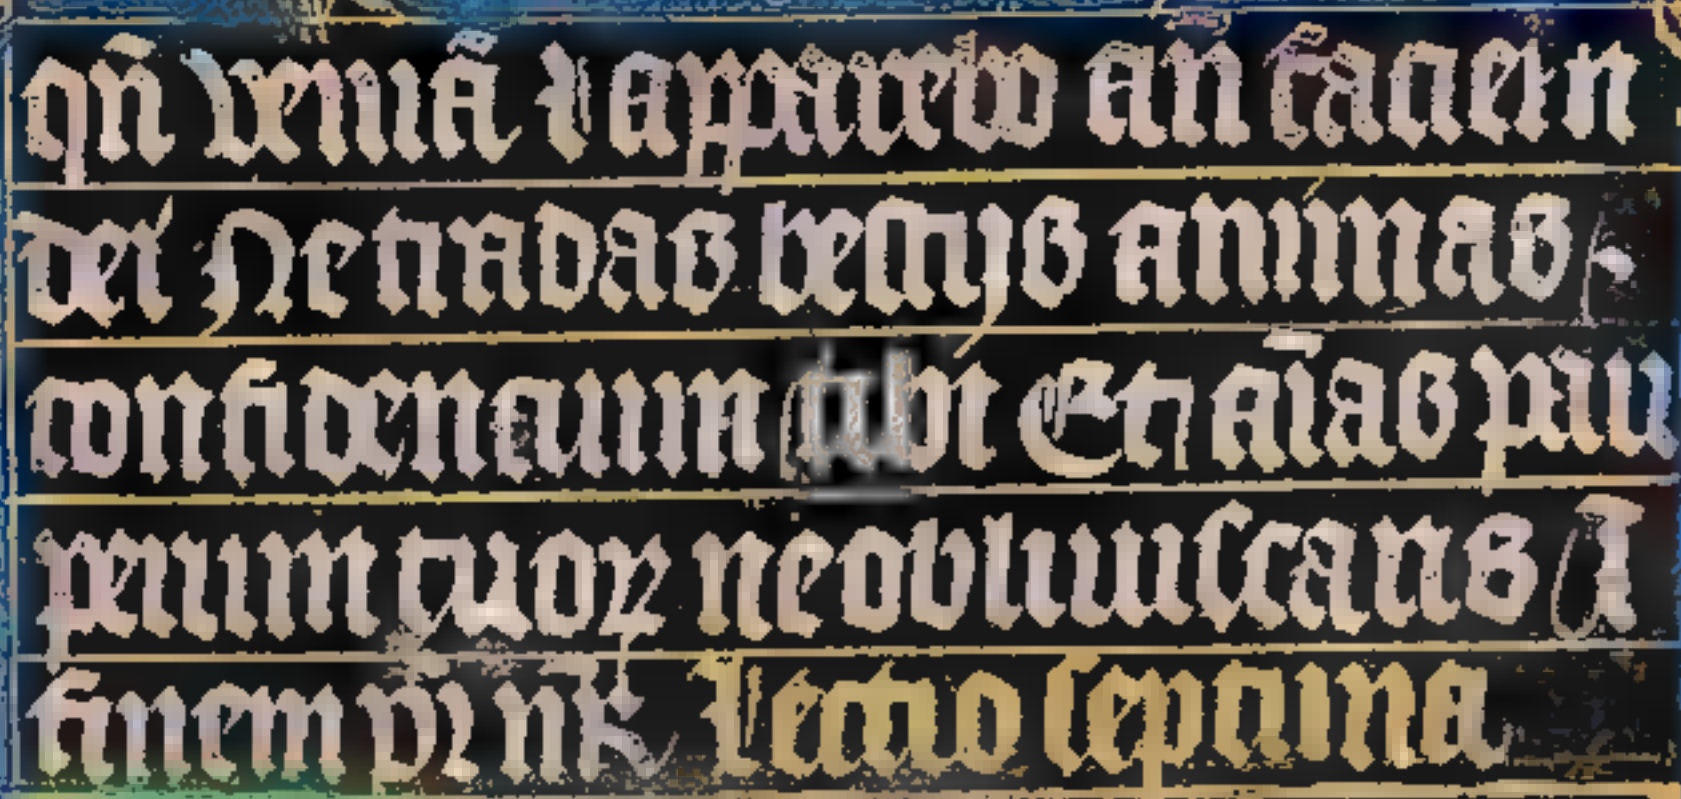 qn̄ veniā ⁊ apparebo an̄ faciem
dei Ne tradas bestijs animas
confitencium tibi Et aīas pau
perum tuoꝝ ne obliuiscaris ī
finem
Lectio septima